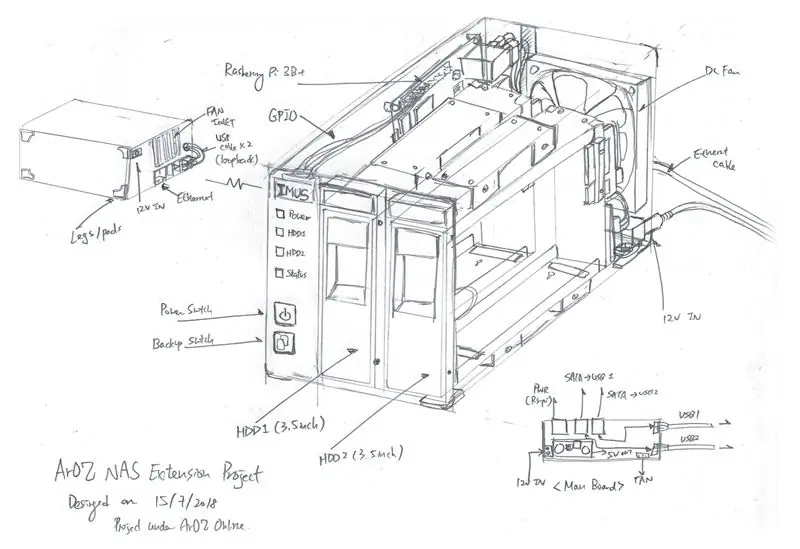 Rasberry Pi 3B+
GPIO
DC Fan
Ethernet
cable
12V IN
FAN
INLET
USB
cable x2
(loopback)
Ethernet
12V IN
Legs/pads
IMUS
Power
HDD1
HDD2
Status
Power Switch
Backup Switch
HDD1 (3.5inch)
HDD2 (3.5inch)
SATA→USB1
SATA→USB2
PWR
(Rspi)
USB1
USB2
12V IN
FAN
<Main Board>
ArOZ NAS Extension Project
Designed on 15/7/2018
Project under ArOZ Online.